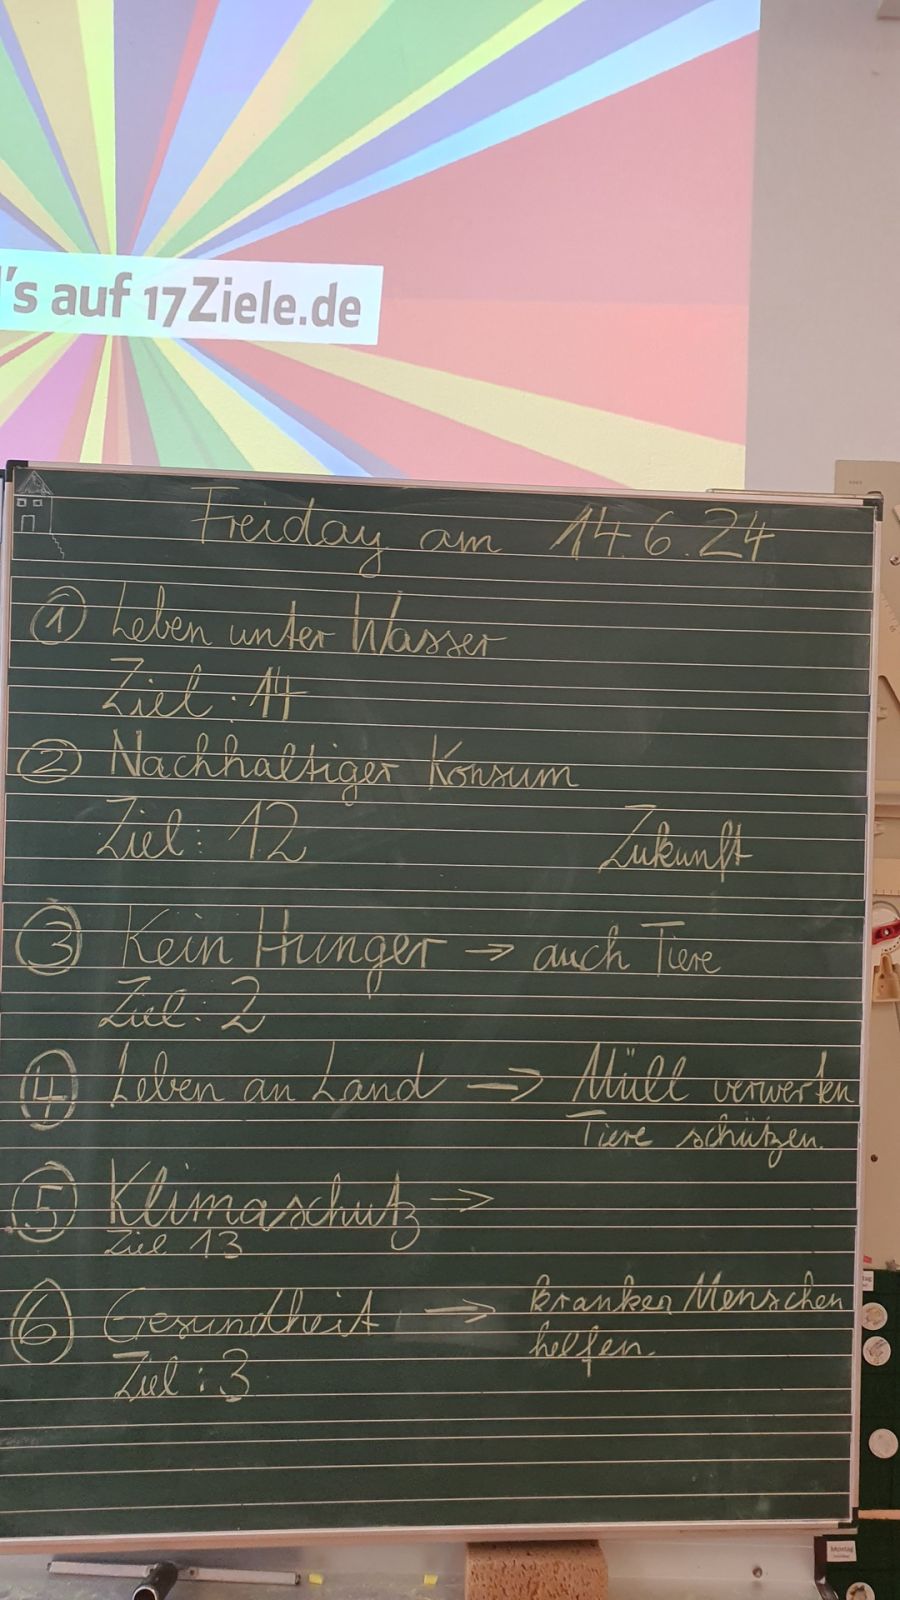 's auf 17Ziele.de
Freiday am 14.6.24
① Leben unter Wasser
Ziel: 14
② Nachhaltiger Konsum
Ziel: 12
Zukunft
③ Kein Hunger → auch Tiere
Ziel: 2
④ Leben an Land → Müll verwerten
Tiere schützen.
⑤ Klimaschutz →
Ziel 13
⑥ Gesundheit → kranken Menschen
helfen.
Ziel: 3
Montag